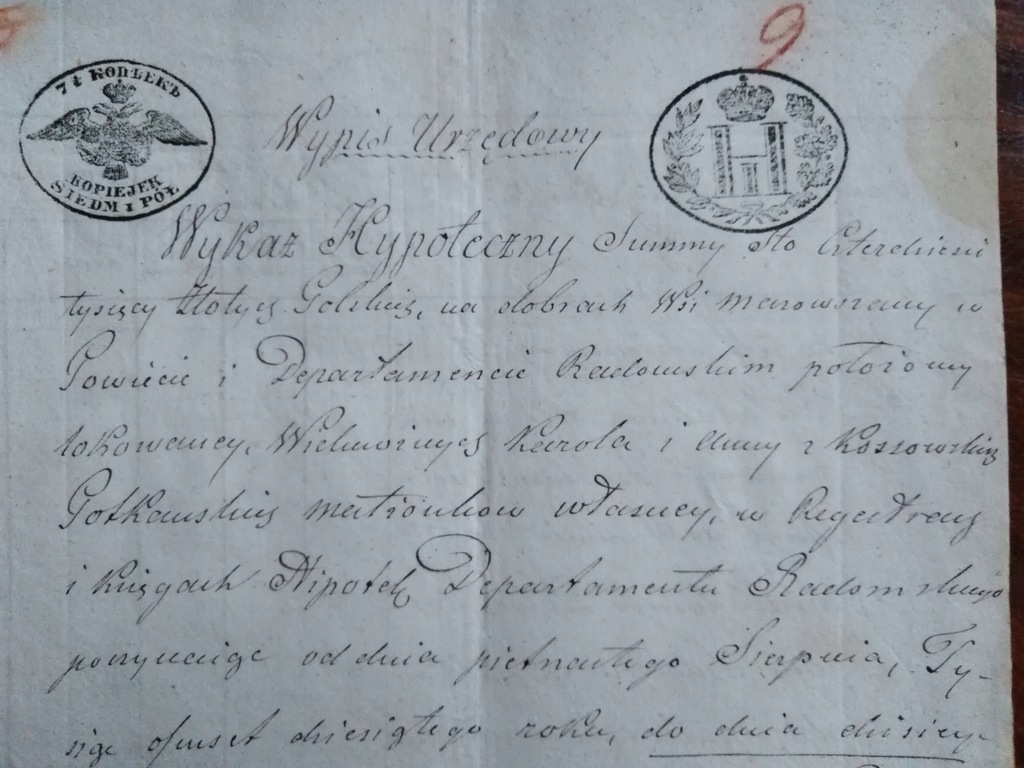 9
7½ КОПѢЕКЪ
KOPIEJEK
SIEDM I PÓŁ
H
Wypis Urzędowy
Wykaz Hypoteczny Summy Sto Czterdzieści
tysięcy Złotych Polskich, na dobrach Wsi
Powiecie i Departamencie Radomskim położony
lokowaney, Wielmożnych Karola i Anny z Kossowskich
małżonków własney, w Regestrach
i księgach Hipotek Departamentu Radomskiego
poczynaiąc od dnia piętnastego Sierpnia, Ty-
siąc ośmset dziesiątego roku, do dnia dzisiey-